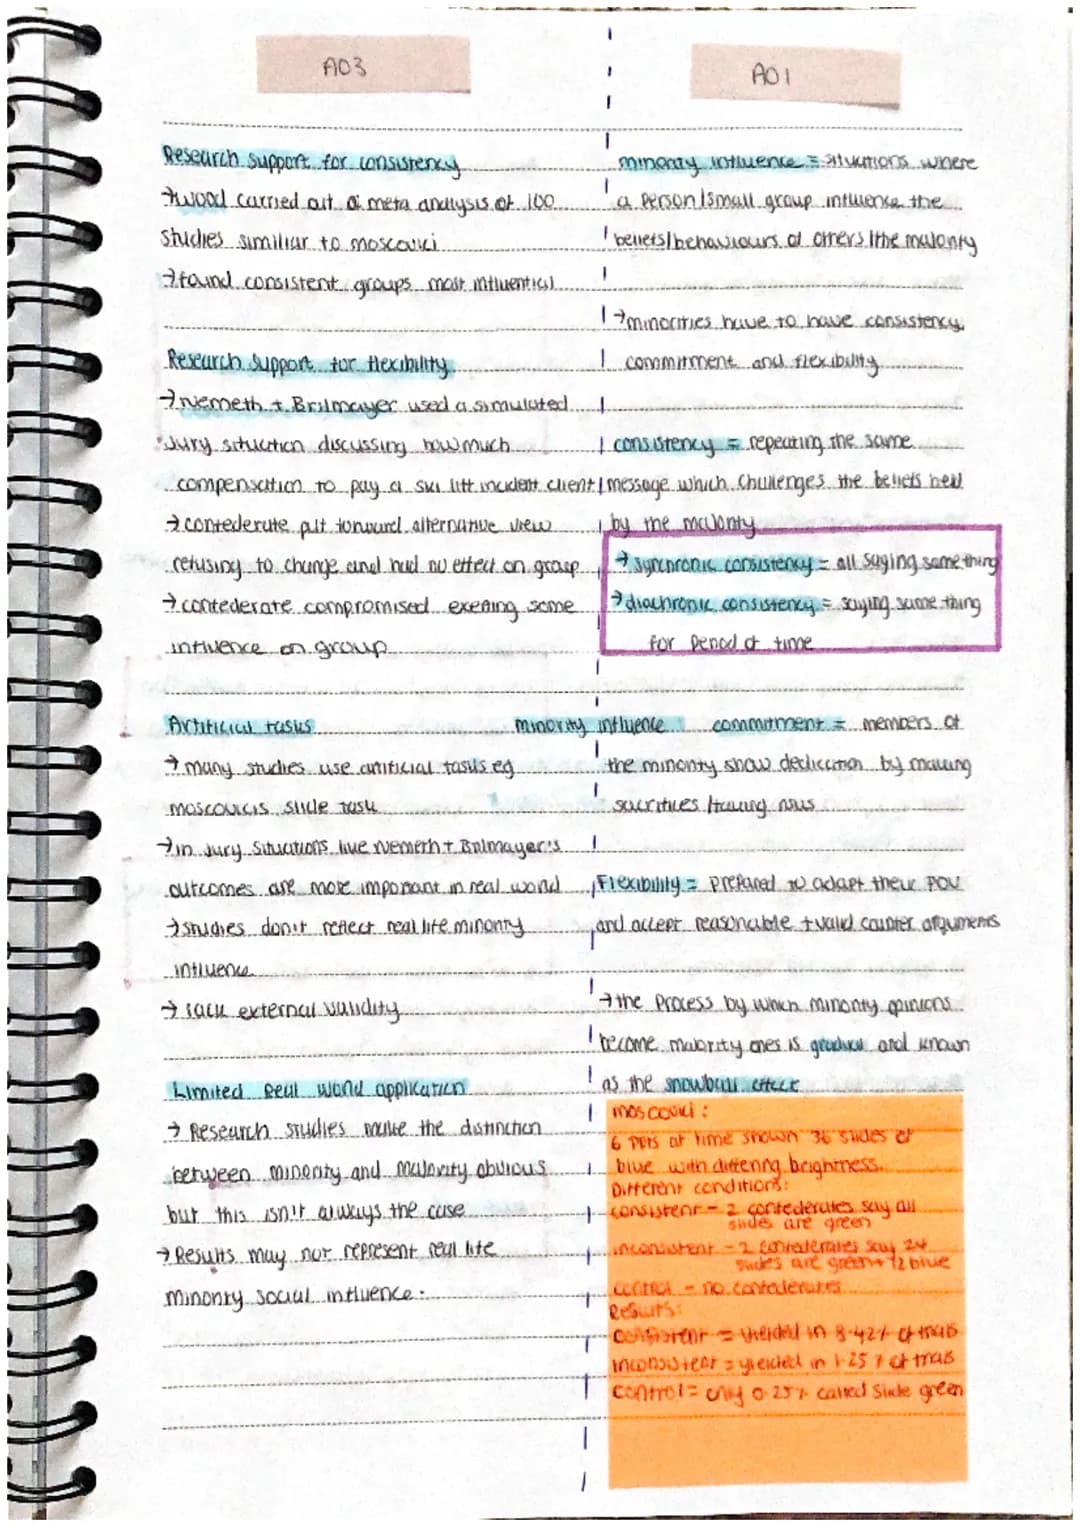 AO3
Research support for consistency
→ Wood carried out a meta analysis of 100
studies similiar to moscovici
→ found consistent groups most influential
Research support for flexibility
→ Nemeth + Brilmayer used a simulated
jury situation discussing how much
compensation to pay a ski lift incident client
→ confederate put forward alternative view
refusing to change and had no effect on group
→ confederate compromised exerting some
influence on group
Artificial tasks
→ many studies use artificial tasks eg
moscovicis slide task
→ in jury situations like Nemeth + Brilmayer's
outcomes are more important in real world
→ studies don't reflect real life minority
influence
→ lack external validity
Limited real world application
→ Research studies make the distinction
between minority and majority obvious
but this isn't always the case
→ Results may not represent real life
minority social influence.
minority influence
AO1
minority influence = situations where
a person/small group influence the
beliefs/behaviours of others/the majority
→ minorities have to have consistency,
commitment and flexibility
consistency = repeating the same
message which challenges the beliefs held
by the majority
→ synchronic consistency = all saying same thing
→ diachronic consistency = saying same thing
for period of time
commitment = members of
the minority show dedication by making
sacrifices / taking risks
Flexibility = prepared to adapt their POV
and accept reasonable + valid counter arguments
→ the process by which minority opinions
become majority ones is gradual and known
as the snowball effect
moscovici :
6 ppts at time shown 36 slides of
blue with differing brightness.
Different conditions:
consistent - 2 confederates say all
slides are green
inconsistent - 2 confederates say 24
slides are green + 12 blue
control - no confederates
Results:
consistent = yielded in 8.42% of trials
inconsistent = yielded in 1.25% of trials
control = only 0.25% called slide green